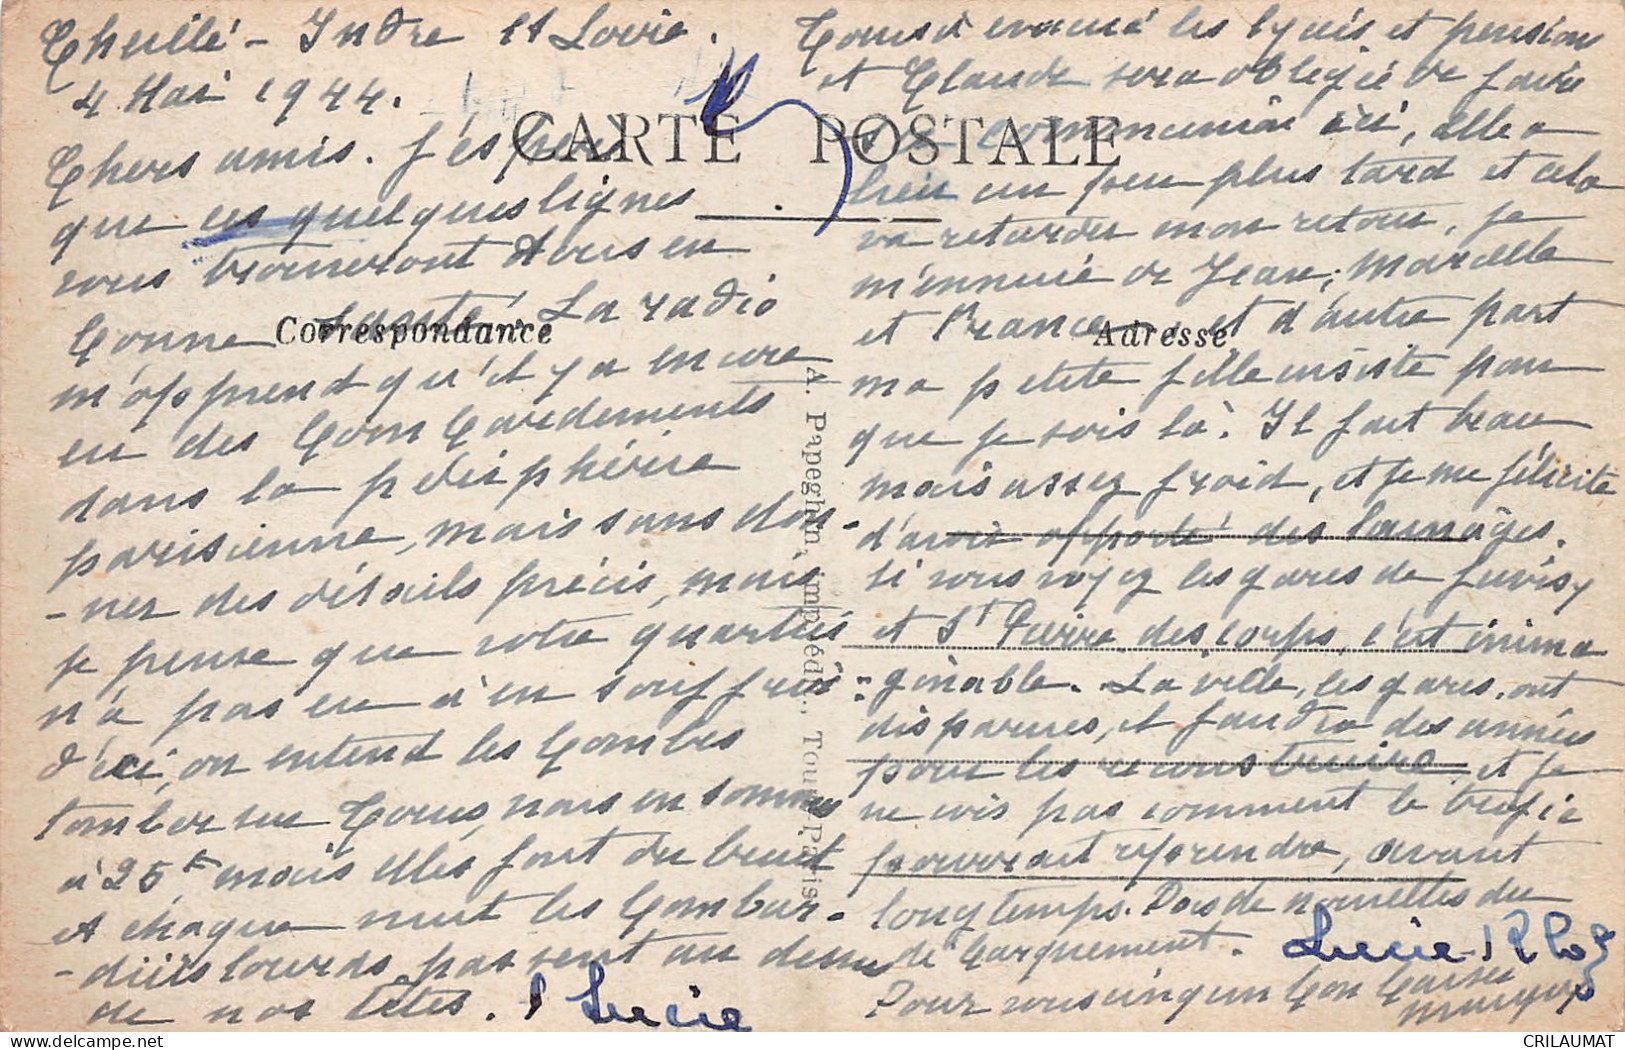 Thuillé - Indre et Loire.
4 Mai 1944.
CARTE POSTALE
Chers amis. J'éspère
que ces quelques lignes
vous trouveront tous en
bonne santé. La radio
Correspondance
m'apprend qu'il y a encore
eu des bombardements
dans la périphérie
parisienne, mais sans don-
-ner des détails précis, mais
je pense que votre quartier
n'a pas eu à en souffrir
d'ici, on entend les bombes
tomber sur Tours, nous en sommes
à 25 K mais elles font du bruit
et chaque nuit les bombar-
-diers lourds passent au dessus
de nos têtes.
Lucie
A. Papeghin, imp.-édit., Tours-Paris
Tours a évacué les lycées et pensions
et Claude sera obligée de faire
sa communion ici, elle a
lieu un peu plus tard et cela
va retarder mon retour, je
m'ennuie de Jean, Marcelle
et France, et d'autre part
Adresse
ma petite fille insiste pour
que je sois là. Il fait beau
mais assez froid, et je me félicite
d'avoir apporté des lainages.
Si vous voyez les gares de Juvisy
et St Pierre des corps, c'est inima
-ginable. La ville, les gares, ont
disparues, et faudra des années
pour les reconstruire, et je
ne vois pas comment le trafic
pourrait reprendre, avant
longtemps. Pas de nouvelles du
débarquement.
Lucie
Pour vous cinq un bon baiser
CRILAUMAT